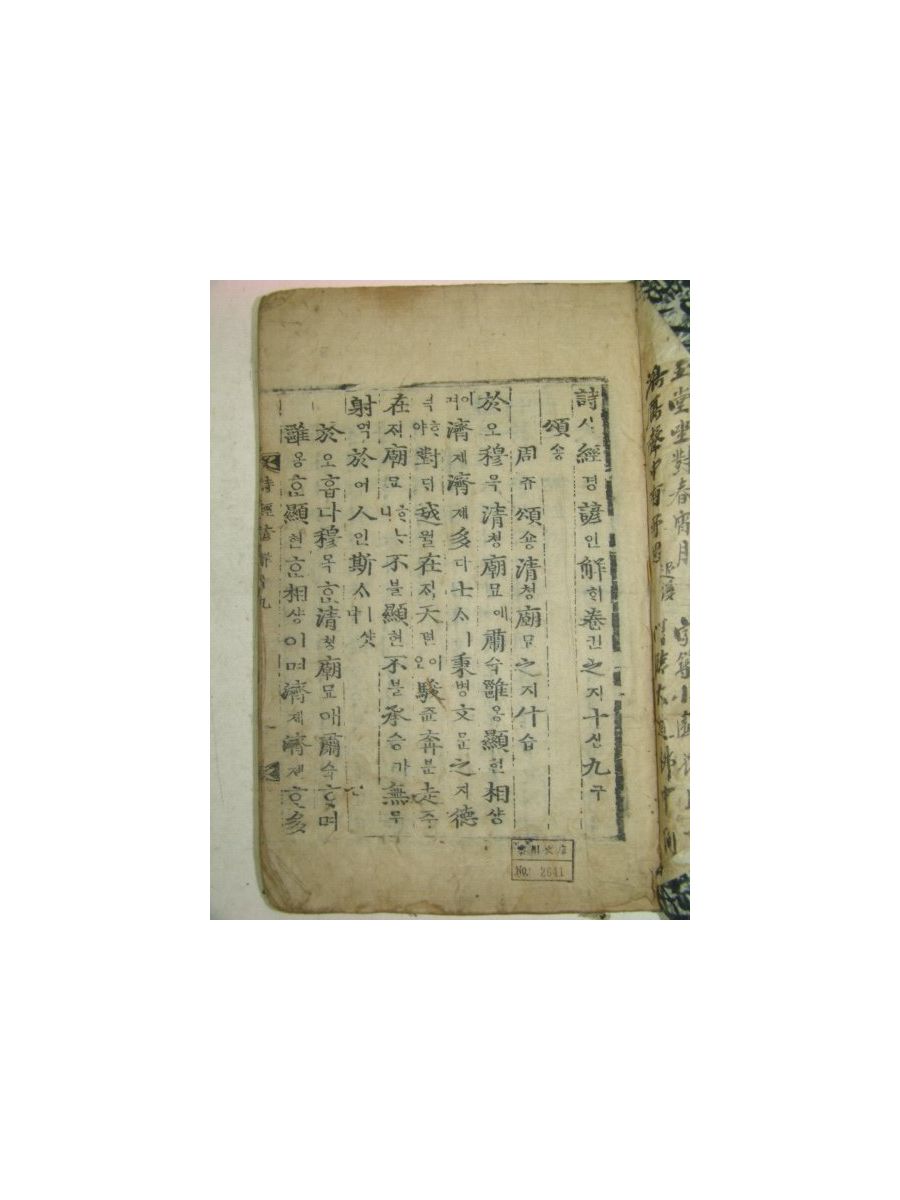 詩시經경諺언解ᄒᆡ卷권之지十십九구
頌숑
周쥬頌숑淸쳥廟묘之지什습
於오穆목淸쳥廟묘에肅슉雝옹顯현相샹
이며濟졔濟졔多다士ᄉᆞㅣ秉병文문之지德
덕ᄒᆞ야對ᄃᆡ越월在ᄌᆡ天텬이오駿쥰奔분走주
在ᄌᆡ廟묘ᄒᆞᄂᆞ니不블顯현不블承승가無무
射역於어人인斯ᄉᆞㅣ샷다
於오홉다穆목ᄒᆞᆫ淸쳥廟묘애肅슉ᄒᆞ며
雝옹ᄒᆞᆫ顯현ᄒᆞᆫ相샹이며濟졔濟졔ᄒᆞᆫ多
詩經諺解 九
No. 2641
玉堂坐對春宵月